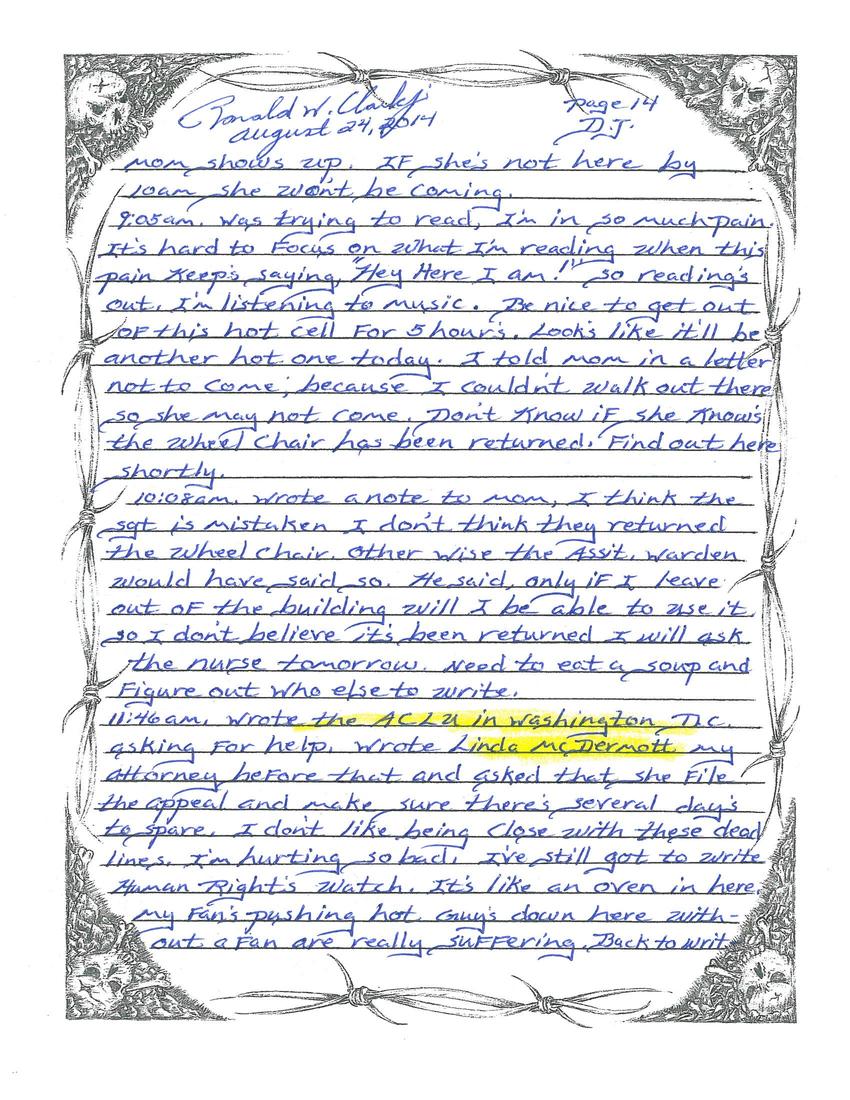 Ronald W. Clark Jr. page 14
August 24, 2014 D.J.
mom shows up. IF she's not here by
10am she won't be coming.
9:05am. Was trying to read, I'm in so much pain.
It's hard to Focus on what I'm reading when this
pain Keep's saying, "Hey Here I am!" so reading's
out. I'm listening to music. Be nice to get out
OF this hot cell For 5 hour's. Look's like it'll be
another hot one today. I told mom in a letter
not to come, because I couldn't walk out there
so she may not come. Don't Know iF she Know's
the wheel Chair has been returned. Find out here
shortly.
10:08am. Wrote a note to mom, I think the
sgt is mistaken I don't think they returned
the wheel Chair. Other wise the Assit. warden
would have said so. He said, only iF I leave
out oF the building will I be able to use it,
so I don't believe it's been returned I will ask
the nurse tomorrow. Need to eat a soup and
Figure out who else to write.
11:46am. Wrote the ACLU in Washington D.C.
asking For help. Wrote Linda McDermott my
attorney beFore that and asked that she File
the appeal and make sure there's several day's
to spare. I don't like being Close with these dead
lines. I'm hurting so bad. I've still got to write
Human Right's Watch. It's like an oven in here.
my Fan's pushing hot. Guy's down here with-
out a Fan are really suFFering. Back to writ